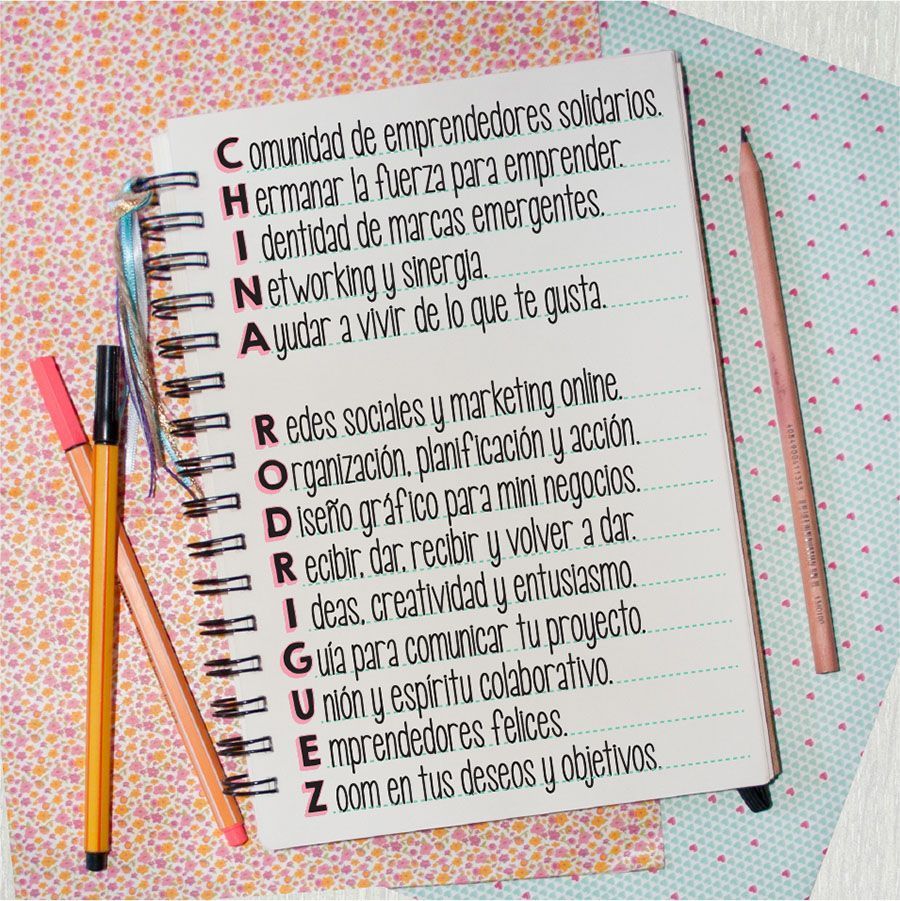 Comunidad de emprendedores solidarios.
Hermanar la fuerza para emprender.
Identidad de marcas emergentes.
Networking y sinergia.
Ayudar a vivir de lo que te gusta.
Redes sociales y marketing online.
Organización, planificación y acción.
Diseño gráfico para mini negocios.
Recibir, dar, recibir y volver a dar.
Ideas, creatividad y entusiasmo.
Guía para comunicar tu proyecto.
Unión y espíritu colaborativo.
Emprendedores felices.
Zoom en tus deseos y objetivos.